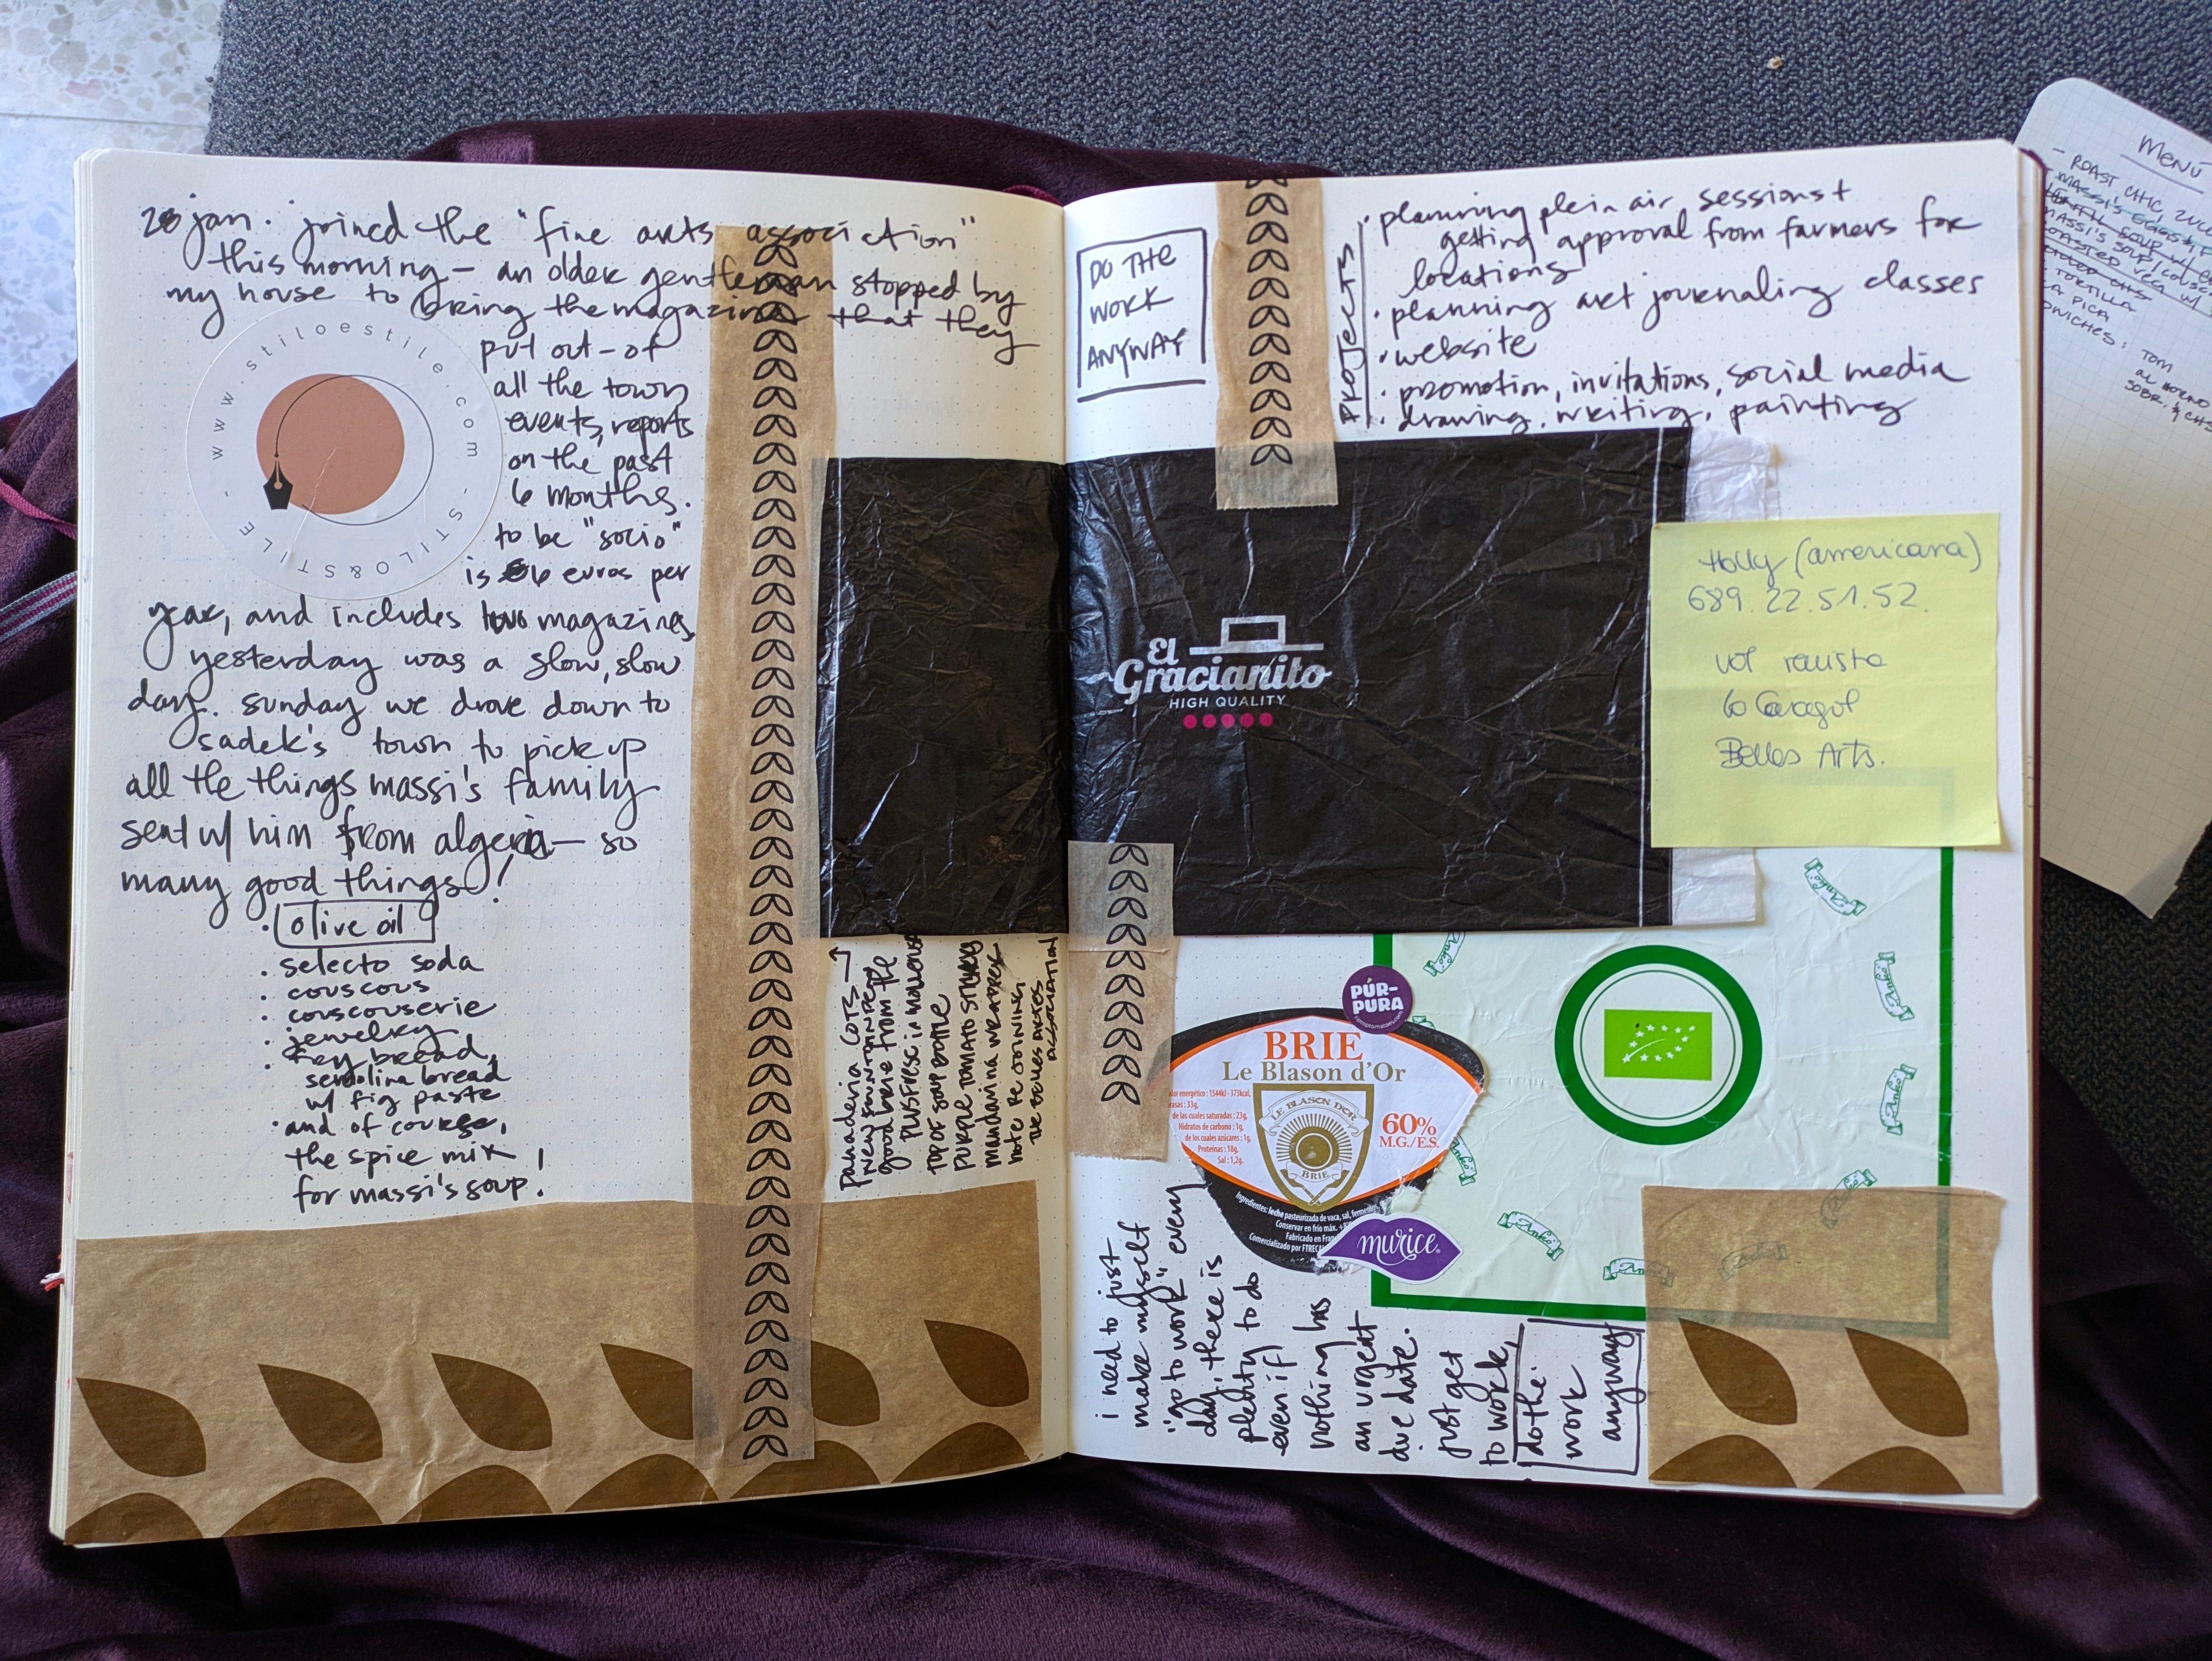 28 jan. joined the "fine arts association"
this morning – an older gentleman stopped by
my house to bring the magazine that they
put out – of
all the town
events, reports
on the past
6 months.
to be "socio"
is 6 euros per
year, and includes two magazines.
yesterday was a slow, slow
day. sunday we drove down to
sadek's town to pick up
all the things massi's family
sent w/ him from algeria – so
many good things!
· olive oil
· selecto soda
· couscous
· couscouserie
· jewelry
· key bread,
semolina bread
w/ fig paste
· and of course,
the spice mix
for massi's soup!
www.stiloestile.com - STILO&STILE -
panaderia COTS →
good brie from the
TOP OF SOUP BOTTLE
PURPLE TOMATO STICKERS
MANDARINA WRAPPER
NOTE RE JOINING
THE BELLES ARTES
ASSOCIATION
DO THE
WORK
ANYWAY
PROJECTS
· planning plein air sessions +
getting approval from farmers for
locations
· planning art journaling classes
· website
· promotion, invitations, social media
· drawing, writing, painting
El
Gracianito
HIGH QUALITY
Holly (americana)
689.22.51.52.
vol revista
lo Caragol
Belles Arts.
PÚR-
PURA
BRIE
Le Blason d'Or
Valor energético: 1544kJ - 373kcal,
Grasas: 33g,
de las cuales saturadas: 23g,
Hidratos de carbono: 1g,
de los cuales azúcares: 1g,
Proteínas: 18g,
Sal: 1,2g.
60%
M.G./E.S.
LE BLASON D'OR
BRIE
Ingredientes: leche pasteurizada de vaca, sal,
Conservar en frío máx.
Fabricado en
Comercializado por
murice
Anko
Anko
Anko
Anko
Anko
Anko
Anko
i need to just
make myself
"go to work" every
day, there is
plenty to do
even if
nothing has
an urgent
due date.
just get
to work,
do the
work
anyway
MENÚ
- ROAST CHIC, ZUCC
MASSI'S EGGS
MASSI'S SOUP/COUSC
ROASTED VEG W/
TORTILLA
LA PICA
TOM
AL HORNO
SOBR. & CHS